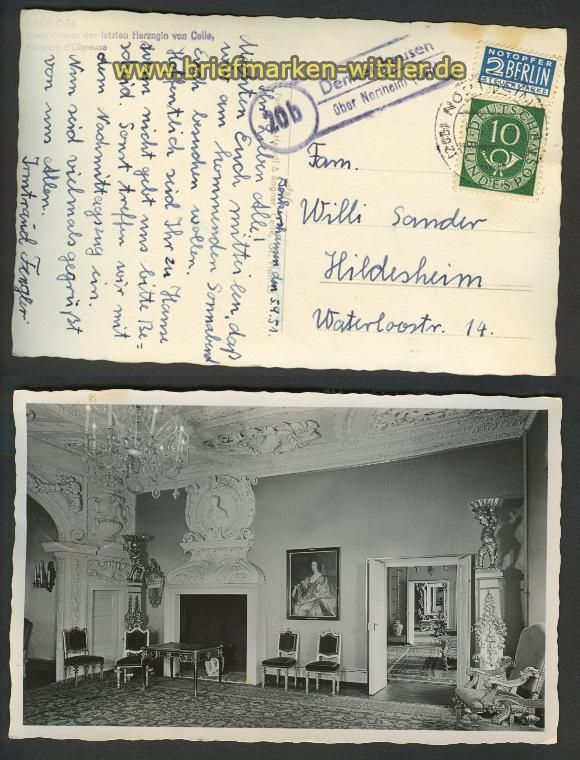 Schloß Celle
Schlafzimmer der letzten Herzogin von Celle,
Eleonore d'Olbreuse
www.briefmarken-wittler.de
20b
über Northeim
NOTOPFER
2 BERLIN
STEUERMARKE
10
DEUTSCHE
BUNDESPOST
Denkershausen den 5.9.51.
Ihr Lieben alle!
Möchten Euch mitteilen, daß
wir am kommenden Sonnabend
Euch besuchen wollen.
Hoffentlich seid Ihr zu Hause
wenn nicht gebt uns bitte Be=
scheid. Sonst treffen wir mit
dem Nachmittagszug ein.
Nun seid vielmals gegrüßt
von uns Allen.
Irmtraud
Fam.
Willi Sander
Hildesheim
Waterloostr. 14.